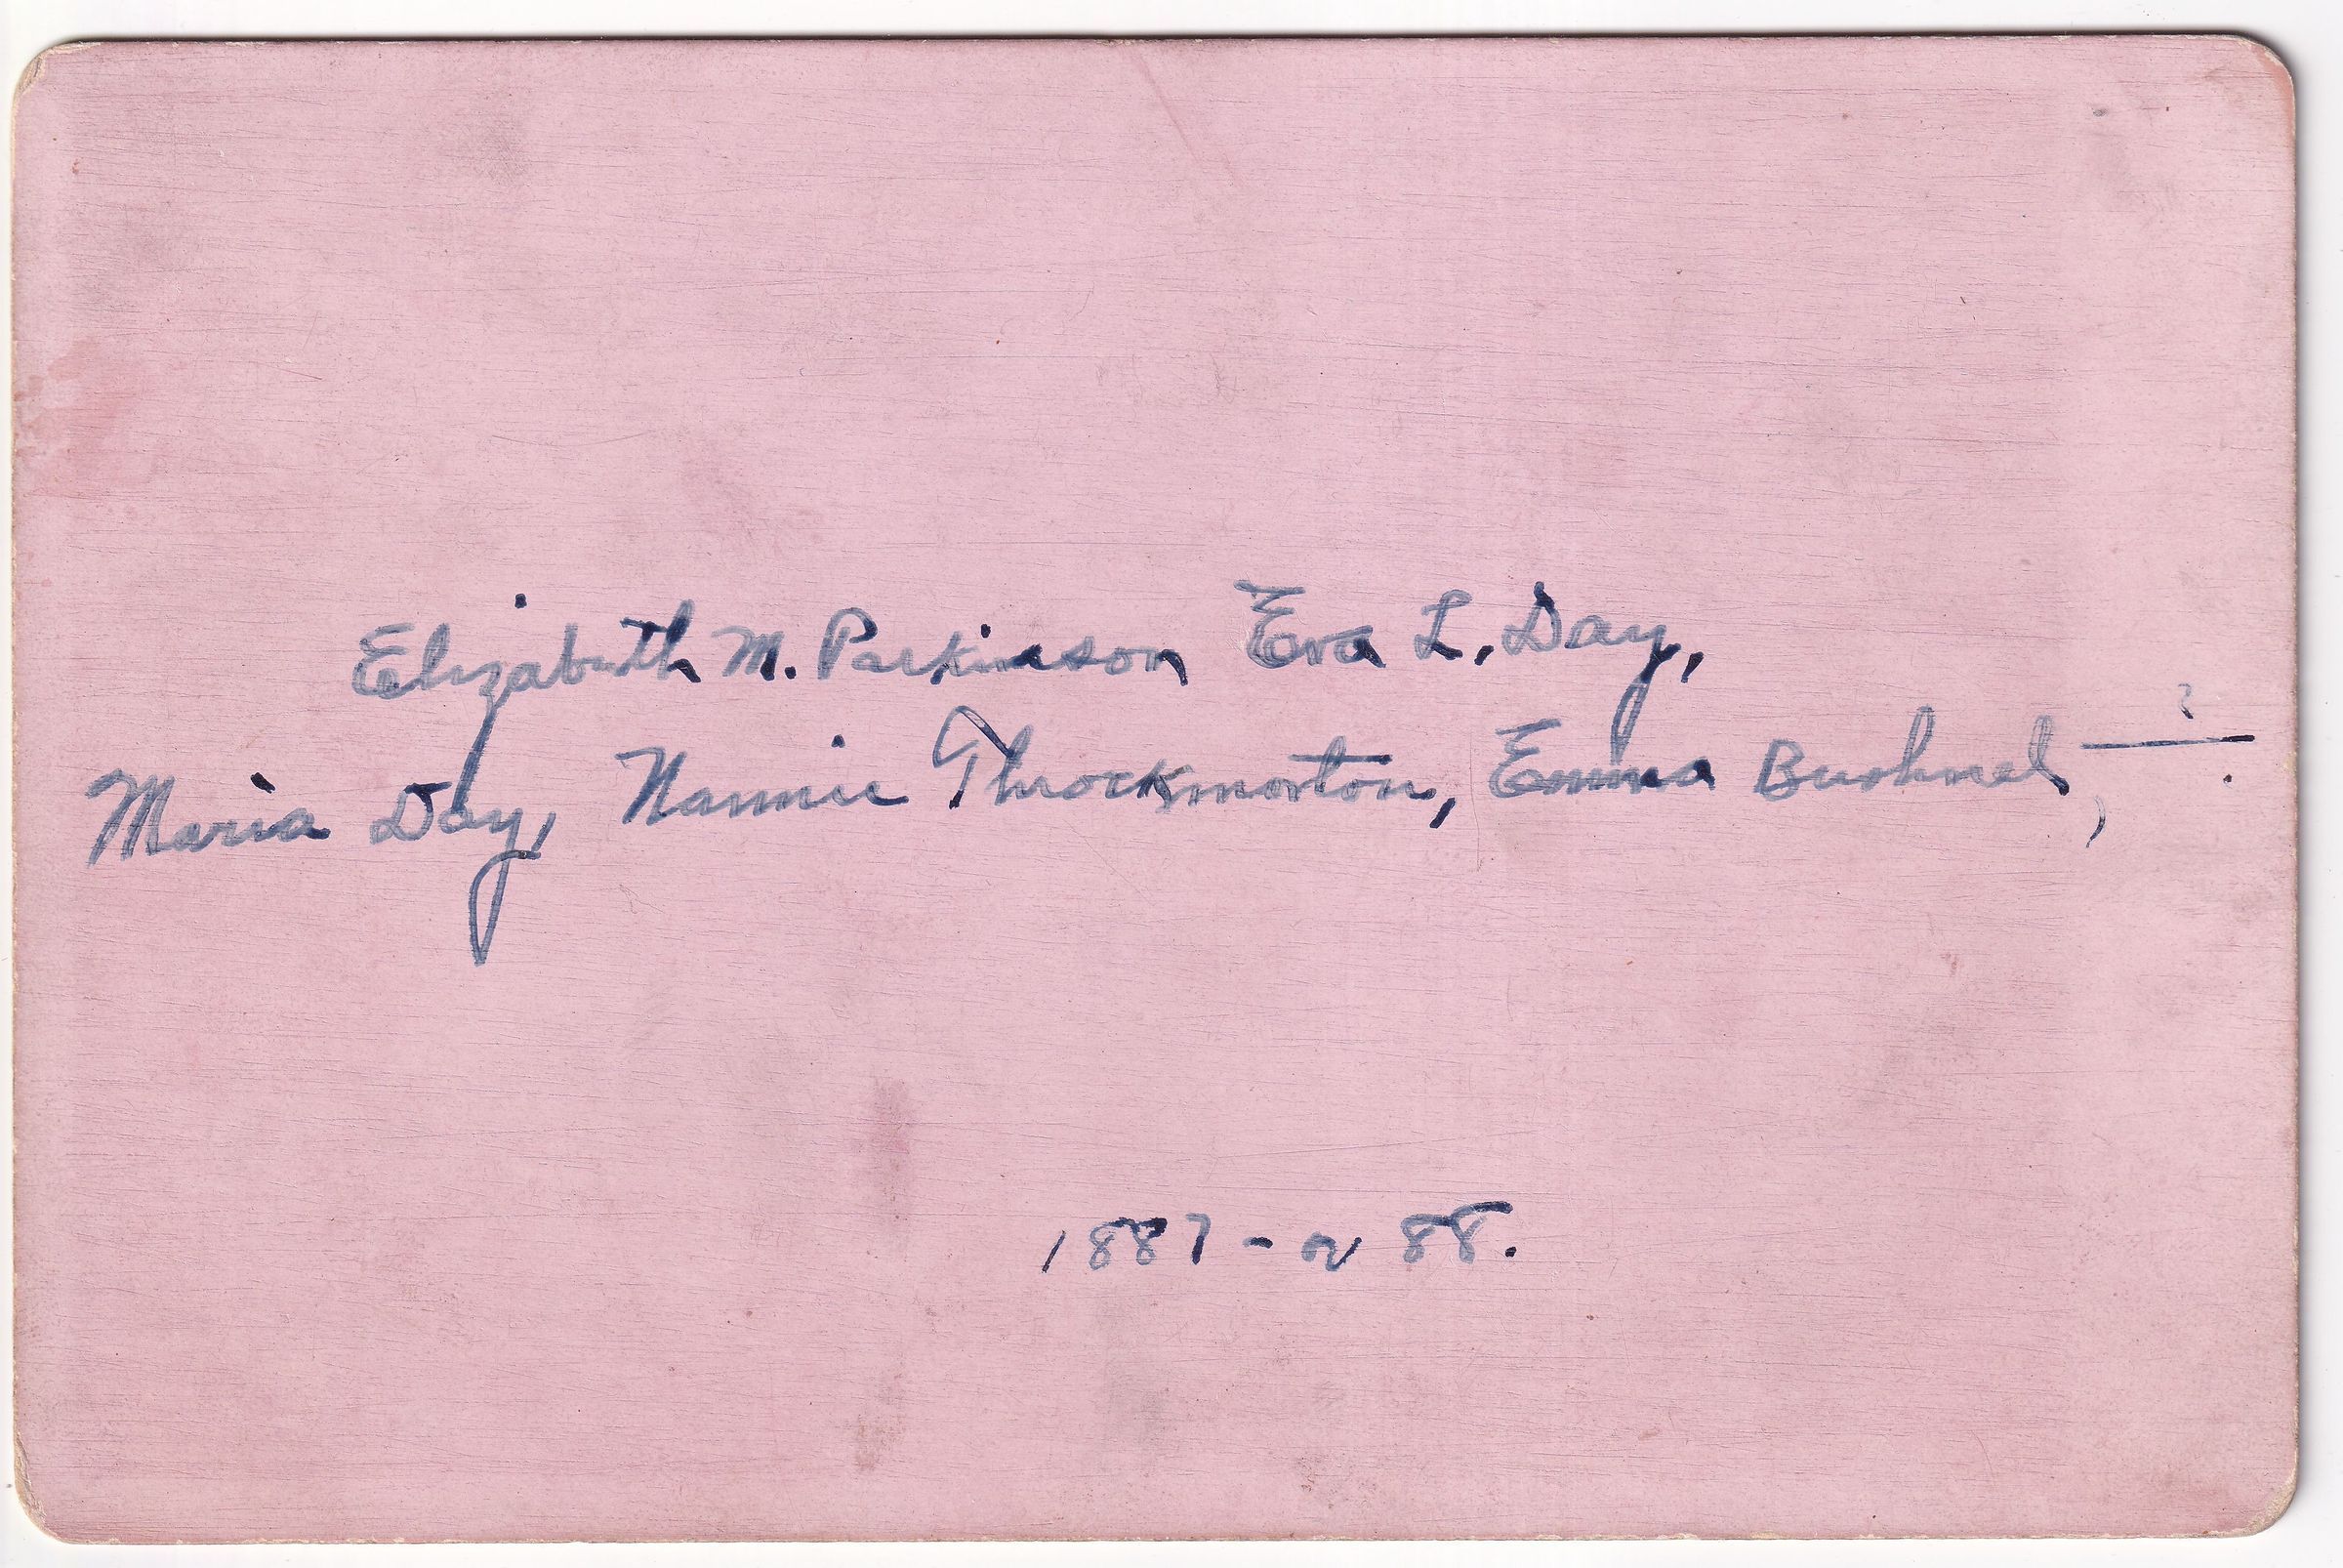 Elizabeth M. Parkinson Eva L. Day,
Maria Day, Nannie Throckmorton, Emma Bushnel, —?—.
1887 - or 88.